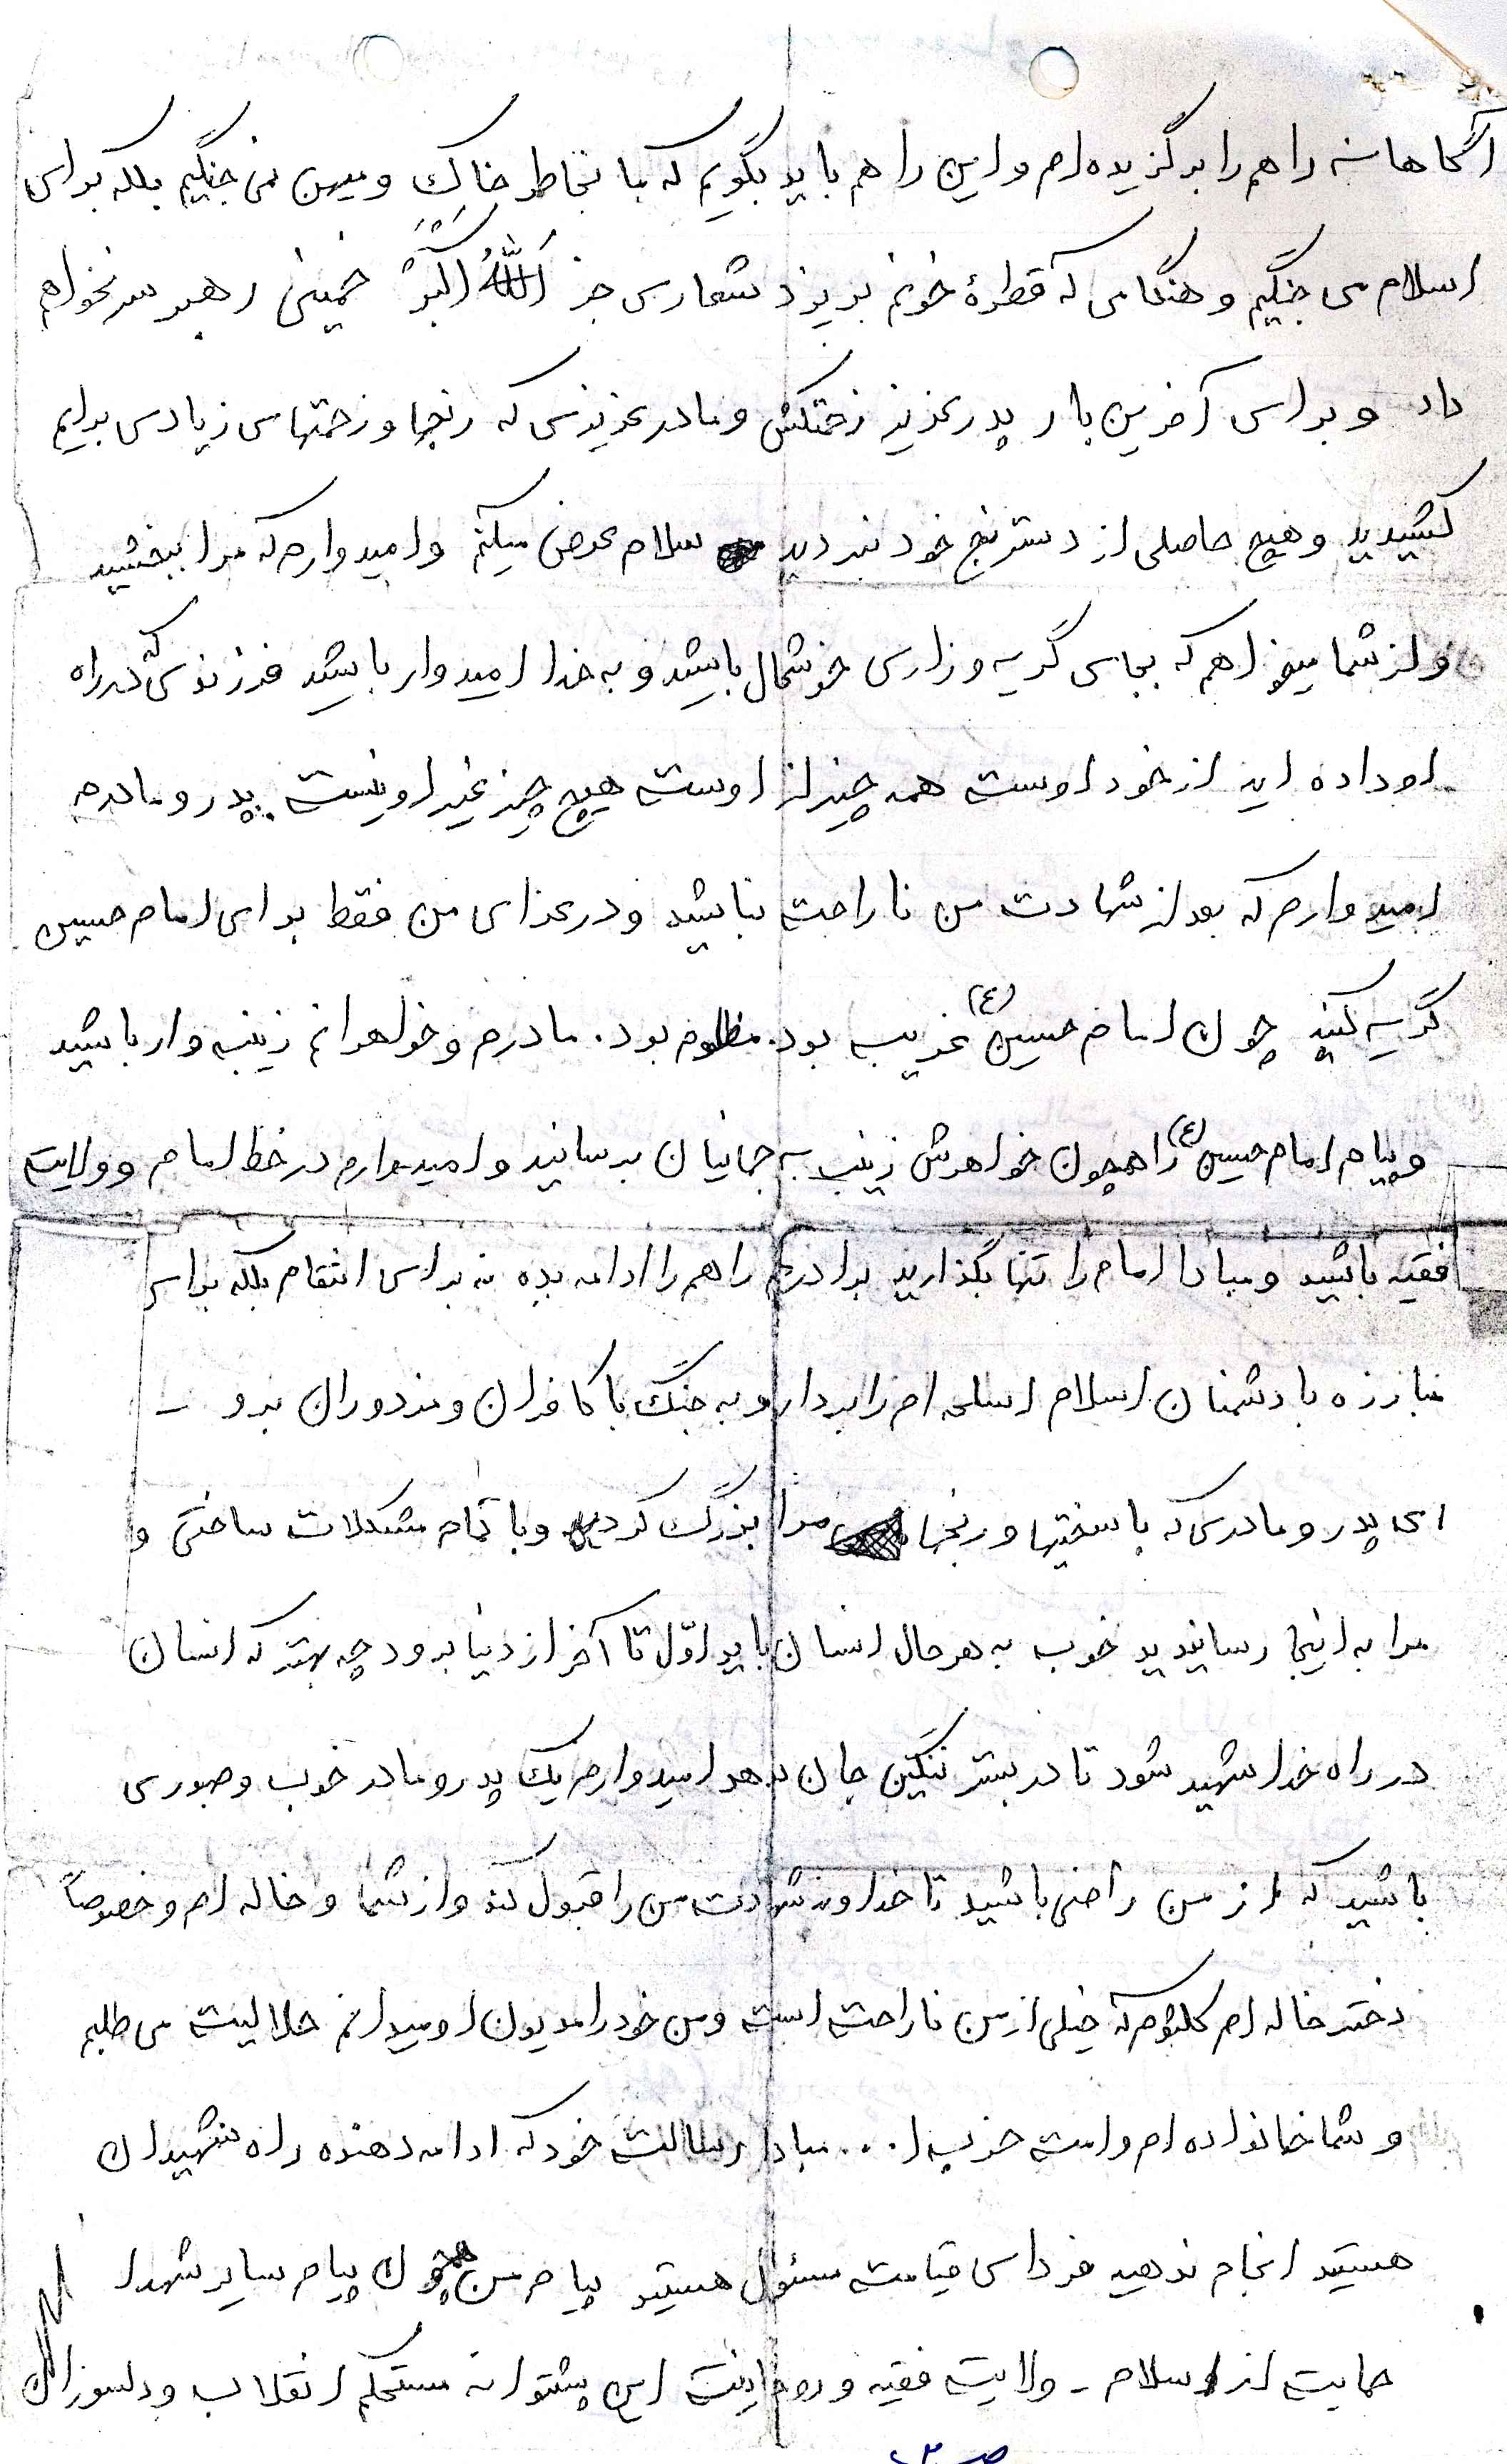 آگاهانه راهم را برگزیده‌ام و این را هم باید بگویم که ما بخاطر خاک و میهن نمی جنگیم بلکه برای
اسلام می جنگیم و هنگامی که قطرهٔ خونم بریزد شعاری جز اَللهُ اَکبَرْ خمینی رهبر سر نخواهم
داد و برای آخرین بار پدر عزیز زحمتکش و مادر عزیزی که رنجها و زحمتهای زیادی برایم
کشیدید و هیچ حاصلی از دسترنج خود نبردید سلام عرض میکنم و امیدوارم که مرا ببخشید
و از شما میخواهم که بجای گریه و زاری خوشحال باشید و به خدا امیدوار باشید فرزندی که در راه
او داده اید از خود اوست همه چیز از اوست هیچ چیز غیر او نیست. پدر و مادرم
امیدوارم که بعد از شهادت من ناراحت نباشید و در عزای من فقط برای امام حسین
گریه کنید چون امام حسین (ع) غریب بود. مظلوم بود. مادرم و خواهرانم زینب وار باشید
و پیام امام حسین (ع) را همچون خواهرش زینب به جهانیان برسانید و امیدوارم در خط امام و ولایت
فقیه باشید و مبادا امام را تنها بگذارید برادرم راهم را ادامه بده نه برای انتقام بلکه برای
مبارزه با دشمنان اسلام اسلحه ام را بردار و به جنگ با کافران و مزدوران برو -
ای پدر و مادری که با سختیها و رنجها مرا بزرگ کردید و با تمام مشکلات ساختی و
مرا به اینجا رساندید خوب به هر حال انسان باید اوّل تا آخر از دنیا برود چه بهتر که انسان
در راه خدا شهید شود تا در بستر ننگین جان بدهد امیدوارم یک پدر و مادر خوب و صبوری
باشید که از من راضی باشید تا خداوند شهادت من را قبول کند و از شما و خاله ام و خصوصاً
دختر خاله ام کلثوم که خیلی از من ناراحت است و من خود را مدیون او میدانم حلالیت می طلبم
و شما خانواده ام و امت حزب ا... مبادا رسالت خود که ادامه دهنده راه شهیدان
هستید انجام ندهید فردای قیامت مسئول هستید پیام من همچون پیام سایر شهدا
حمایت از اسلام - ولایت فقیه و روحانیت این پشتوانه مستحکم انقلاب و دلسوزان